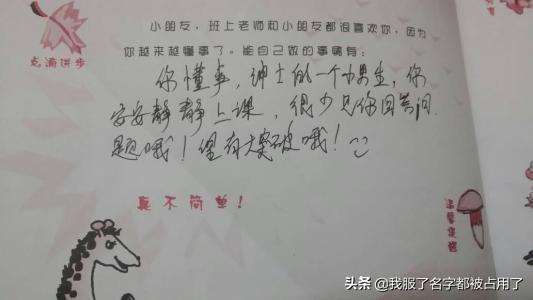 小朋友，班上老师和小朋友都很喜欢你，因为
点滴进步
你越来越懂事了。能自己做的事情有：
你懂事，绅士的一个小男生，你
安安静静上课，很少见你回答问
题哦！望有大突破哦！
真不简单！
温馨
头条 @我服了名字都被占用了